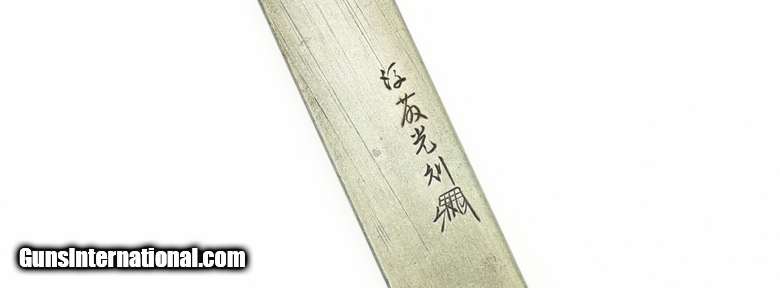 後藤光則
GunsInternational.com